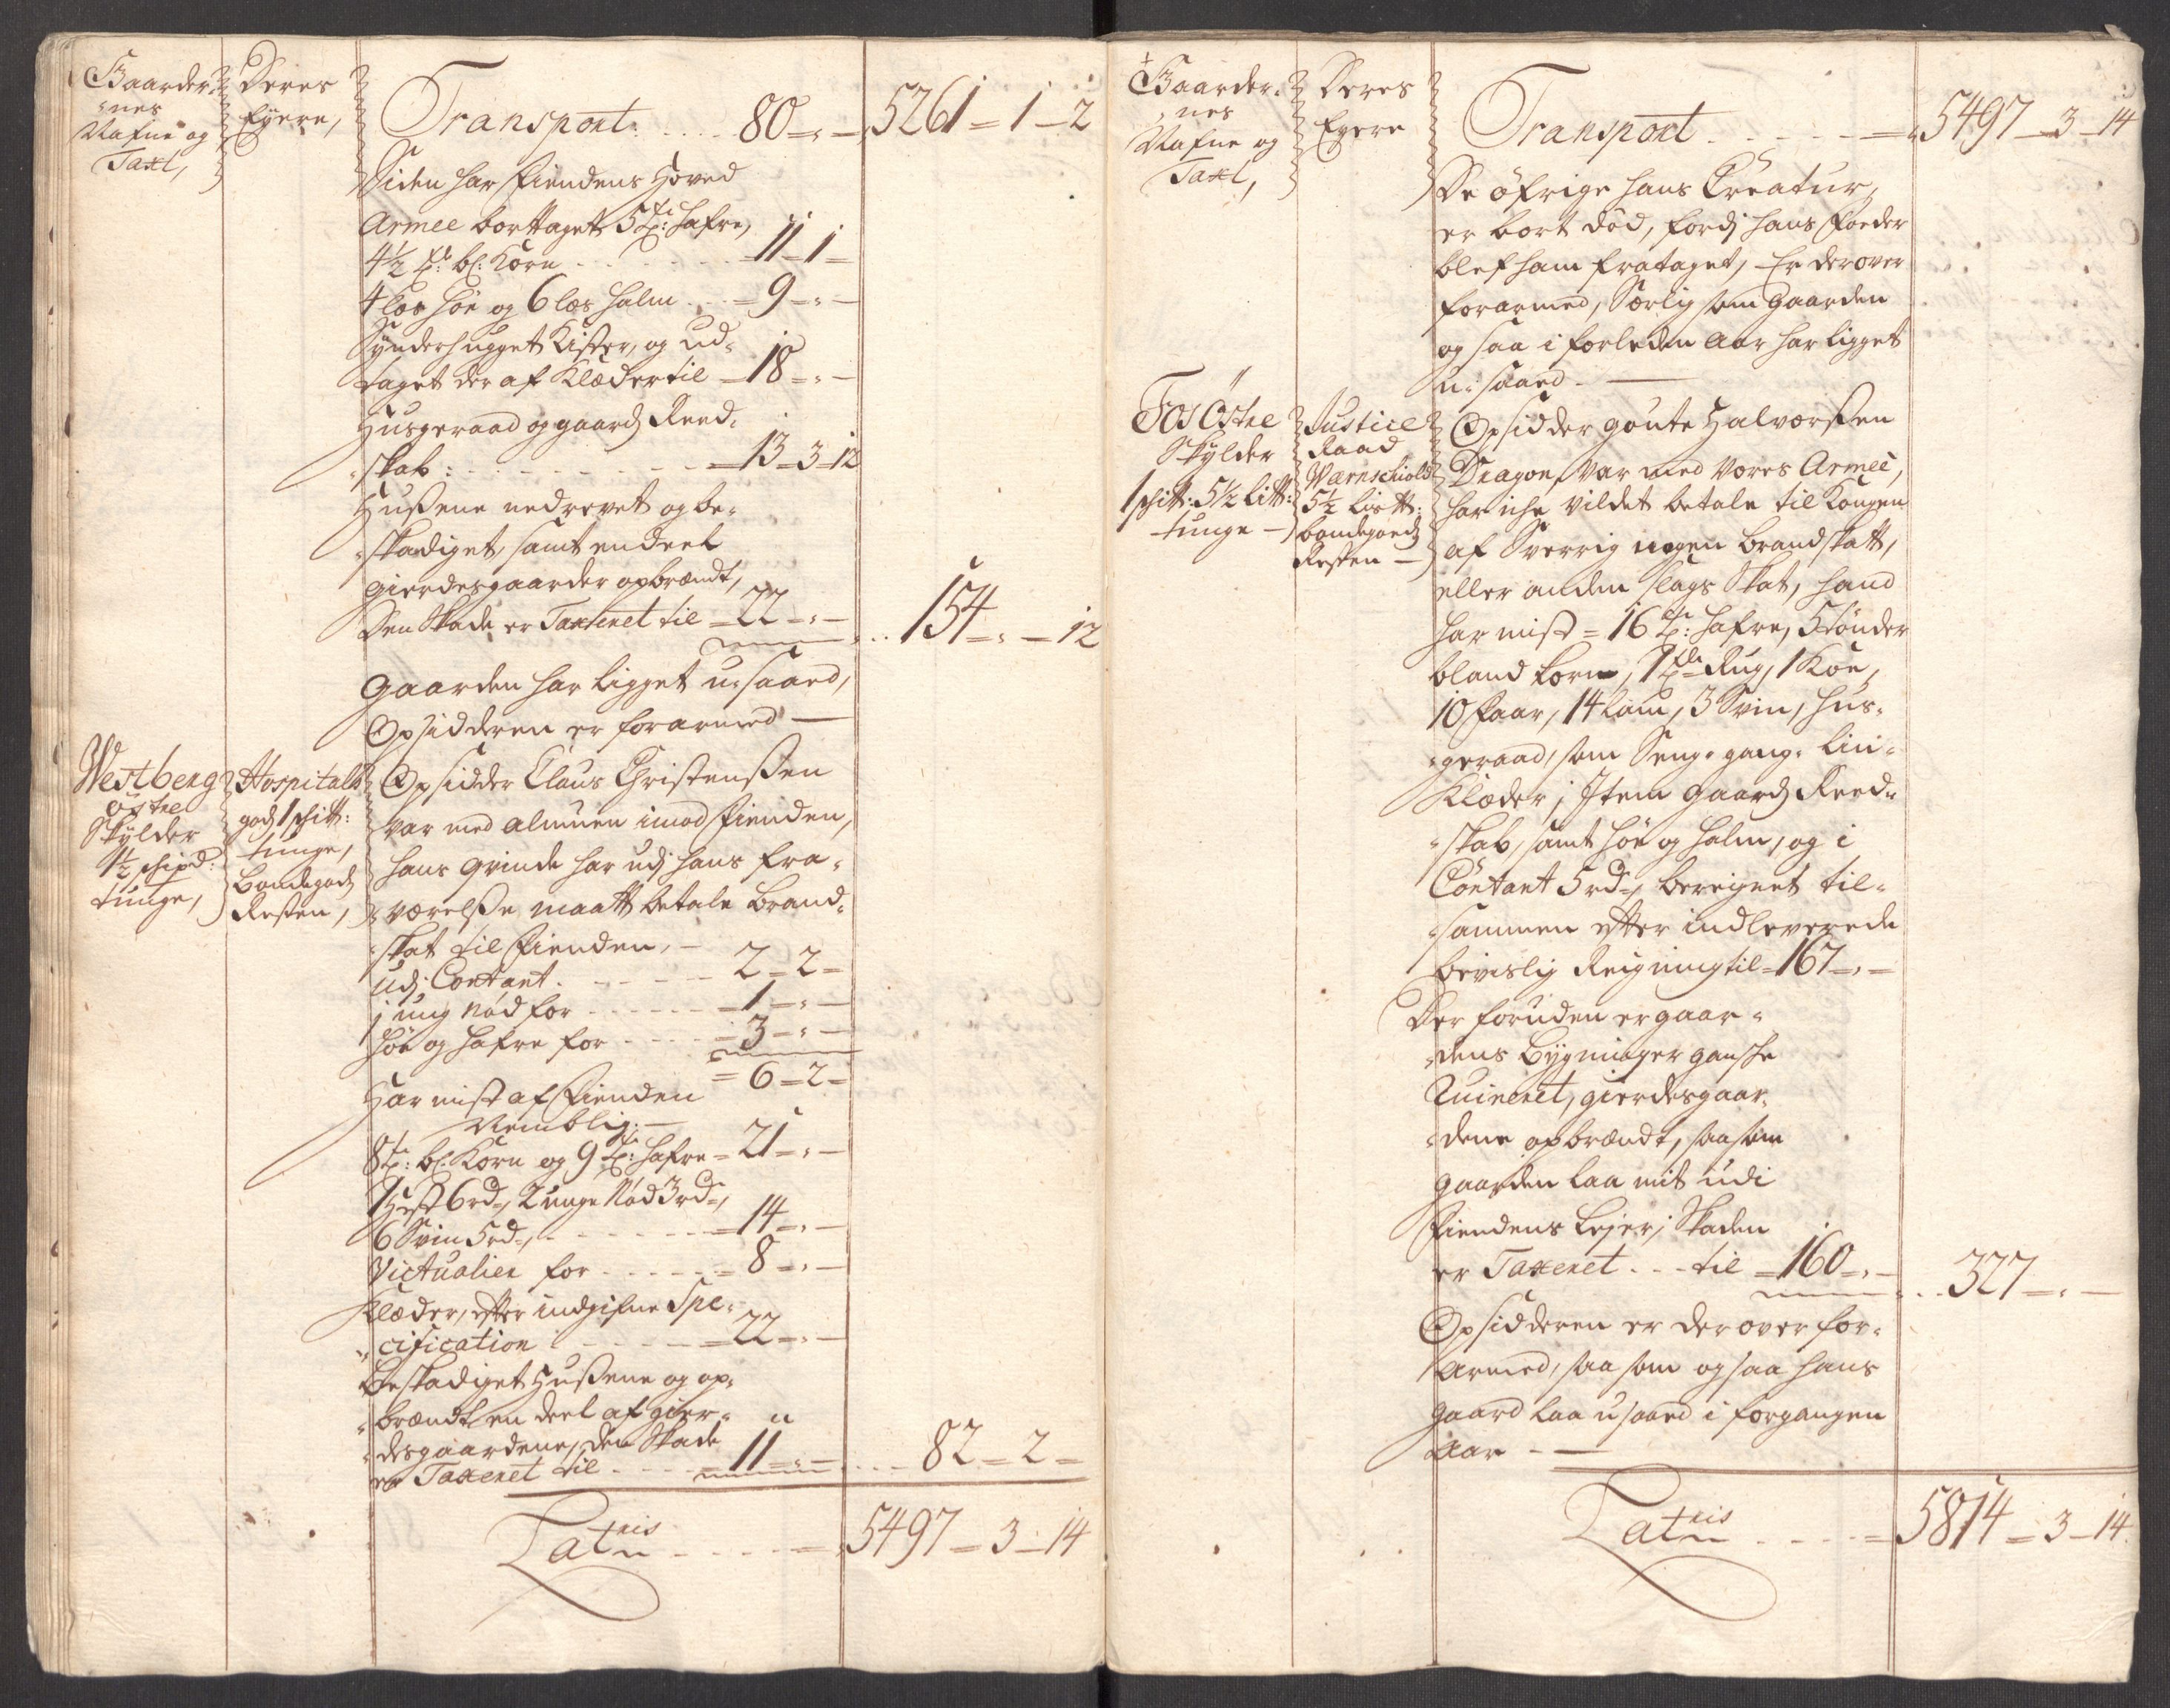 Gaarder-
nes
Nafne og
Taxt,
Deres
Eyere,
Transport: .... 80 - " - 5261 - 1 - 2
Siden har fiendens Hoved
Armee borttaget 5 tr: hafre,
4½ tr: bl: Korn ..... 11 - 1 -
4 læs höe og 6 læs halm ... 9 - " -
Synderhugget Kister, og ud-
taget der af Klæder til - 18 - " -
Husgeraad og gaards Reed-
skab: ..... 13 - 3 - 12
Hußene nedrevet og be-
skadiget, samt endeel
gierdesgaarder opbrændt,
Den Skade er Taxeret til - 22 - " - .. 154 - " - 12
Gaarden har ligget u-saaed,
Opsidderen er forarmed —
Westberg
östre
Skylder
1½ schipd:
tunge,
Hospitals
gods 1 schitt:
tunge,
Bondegods
Resten,
Opsidder Claus Christenßen
var med almuen imod fienden,
hans qvinde har udj hans fra-
værelße maatt betale Brand-
skat til fienden, —
udj Contant ..... 2 - 2 -
1 ung Nöd for ..... 1 - " -
höe og hafre for .... 3 - " -
= 6 - 2 -
Har mist af fienden
Nemblig: —
8 tr: bl: Korn og 9 tr: hafre - 21 - " -
1 Hest 6 rd, 2 unge Nöd 3 rd,
6 Svin 5 rd, ..... 14 - " -
Victualier for ..... 8 - " -
Klæder, efter indgifne Spe-
cification ..... 22 - " -
Beskadiget Hußene og op-
brændt en deel af gier-
desgaardene, den Skade
er Taxeret til .... 11 - " - .... 82 - 2 -
Lateris ..... 5497 - 3 - 14
Gaarder-
nes
Nafne og
Taxt,
Deres
Eyere
Transport ..... 5497 - 3 - 14
De öfrige hans Creatur,
er bort död, fordj hans foeder
blef ham frataget, Er derover
forarmed, Særlig som Gaarden
og saa i forleden Aar har ligget
u-saaed. —
Fos Östre
Skylder
1 schitt: 5½ litt:
tunge —
Justice
Raad
Wærnschiold
5½ listt:
bondegoeds
Resten —
Opsidder Goute Halvorßen
Dragon, var med Vores Armeè,
har iche vildet betale til Kongen
af Sverrig nogen Brandskatt,
eller anden slags Skat, hand
har mist = 16 tr: hafre, 5 tönder
bland korn, 1 td Rug, 1 Köe,
10 faar, 14 Lam, 3 Svin, hus-
geraad, som Seng- gang- Lin-
Klæder, Item gaards Reed-
skab, samt höe og halm, og i
Contant 5 rd, beregnet til-
sammen efter indleverede
bevislig Reigning til - 167 - " -
Der foruden er gaar-
dens Bygninger ganske
Ruineret, gierdesgaar-
dene opbrændt, saasom
gaarden laa mit udi
fiendens Lejer, Skaden
er Taxeret ... til - 160 - " - ... 327 - " -
Opsidderen er derover for-
armed, saasom og saa hans
gaard laa usaaed i forgangen
Aar - —
Lateris ..... 5814 - 3 - 14